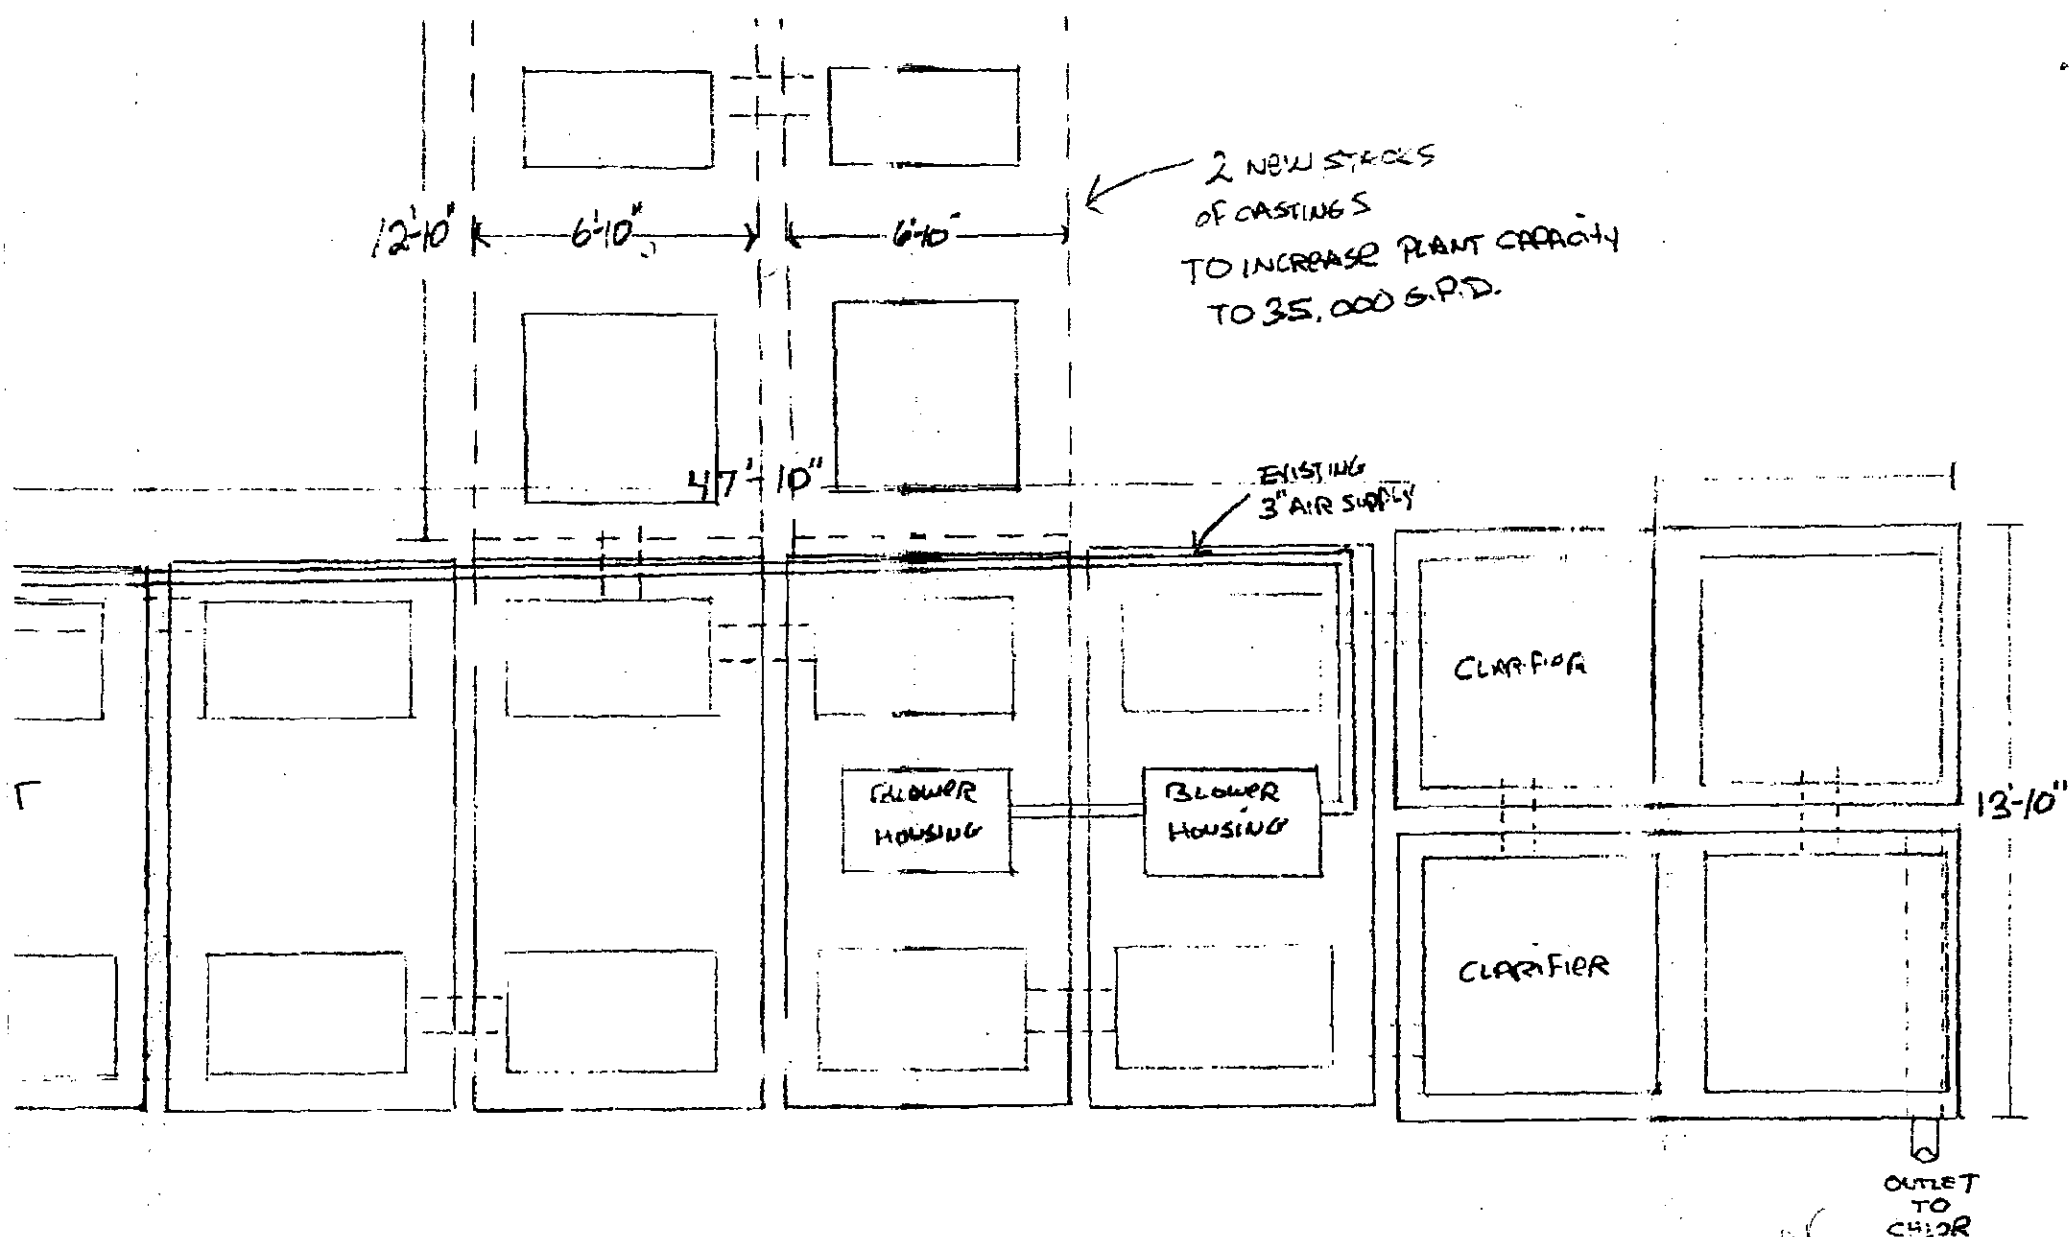 2 NEW STACKS
OF CASTINGS
TO INCREASE PLANT CAPACITY
TO 35,000 G.P.D.
12'-10"
6'-10"
6'-10"
47'-10"
EXISTING
3" AIR SUPPLY
CLARIFIER
T
BLOWER
HOUSING
BLOWER
HOUSING
13'-10"
CLARIFIER
OUTLET
TO
CHLOR